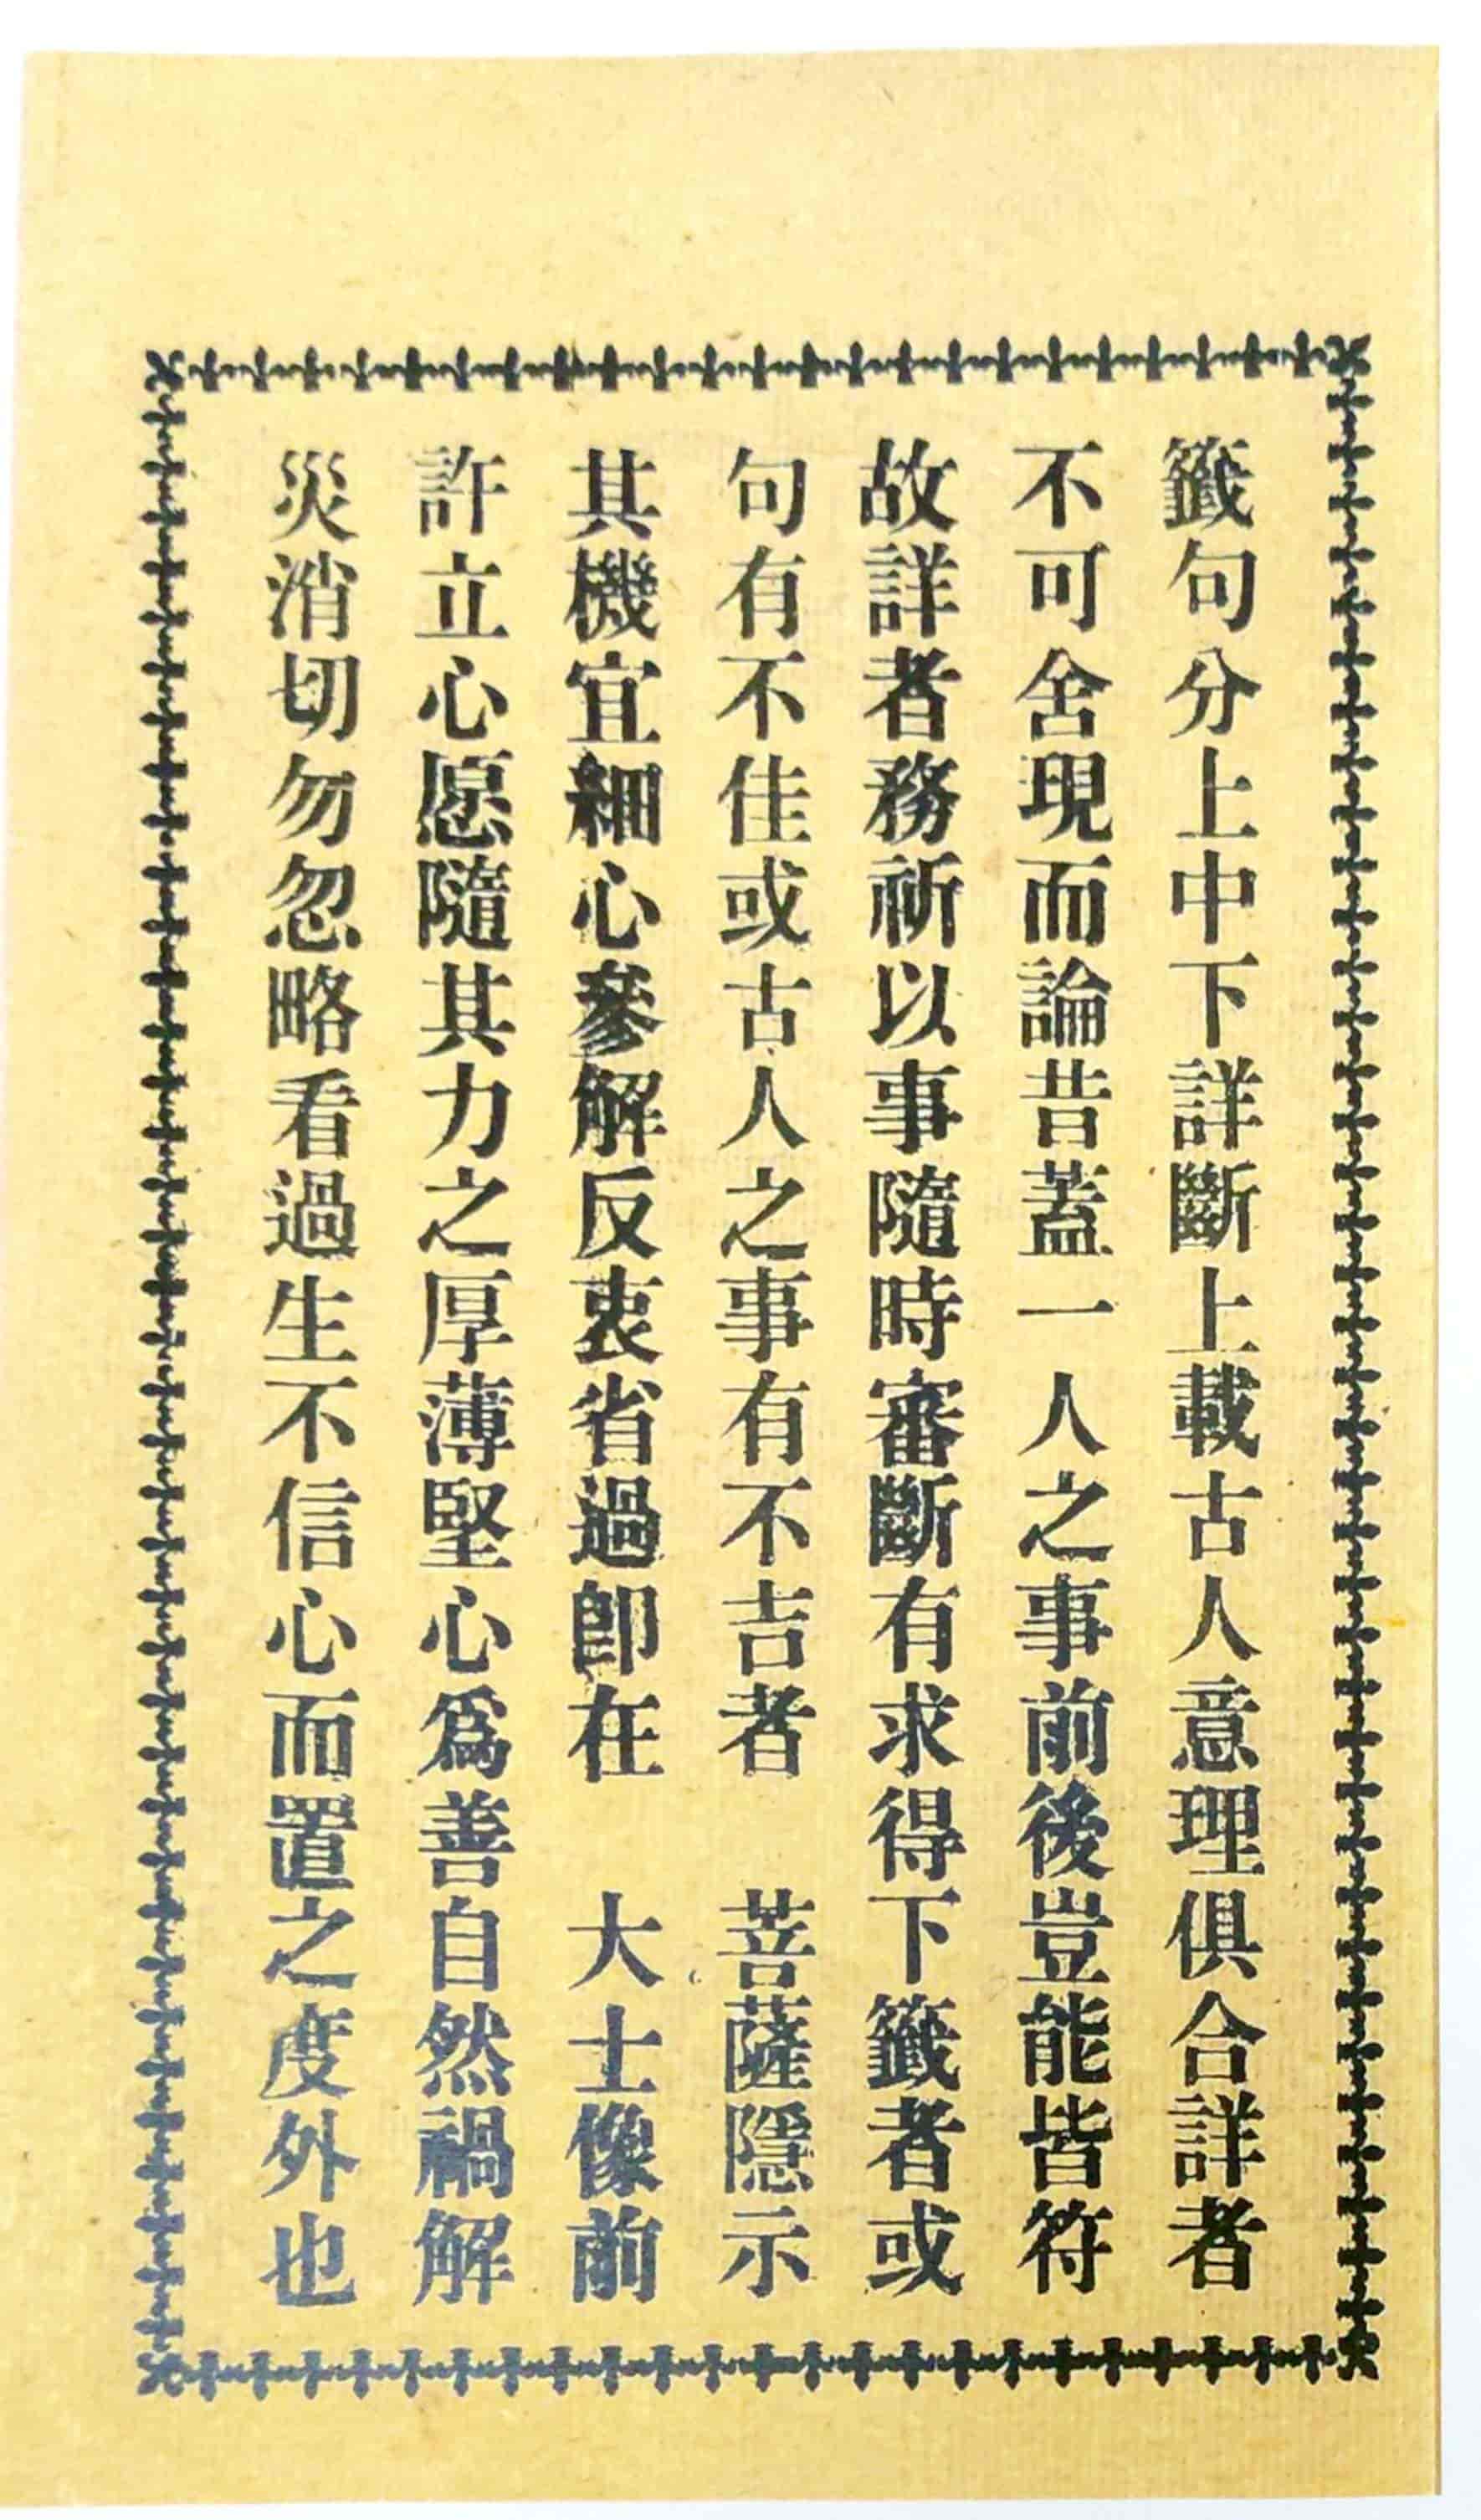 籤句分上中下詳斷上載古人意理俱合詳者
不可舍現而論昔蓋一人之事前後豈能皆符
故詳者務祈以事隨時審斷有求得下籤者或
句有不佳或古人之事有不吉者　菩薩隱示
其機宜細心參解反衷省過卽在　大士像前
許立心愿隨其力之厚薄堅心爲善自然禍解
災消切勿忽略看過生不信心而置之度外也